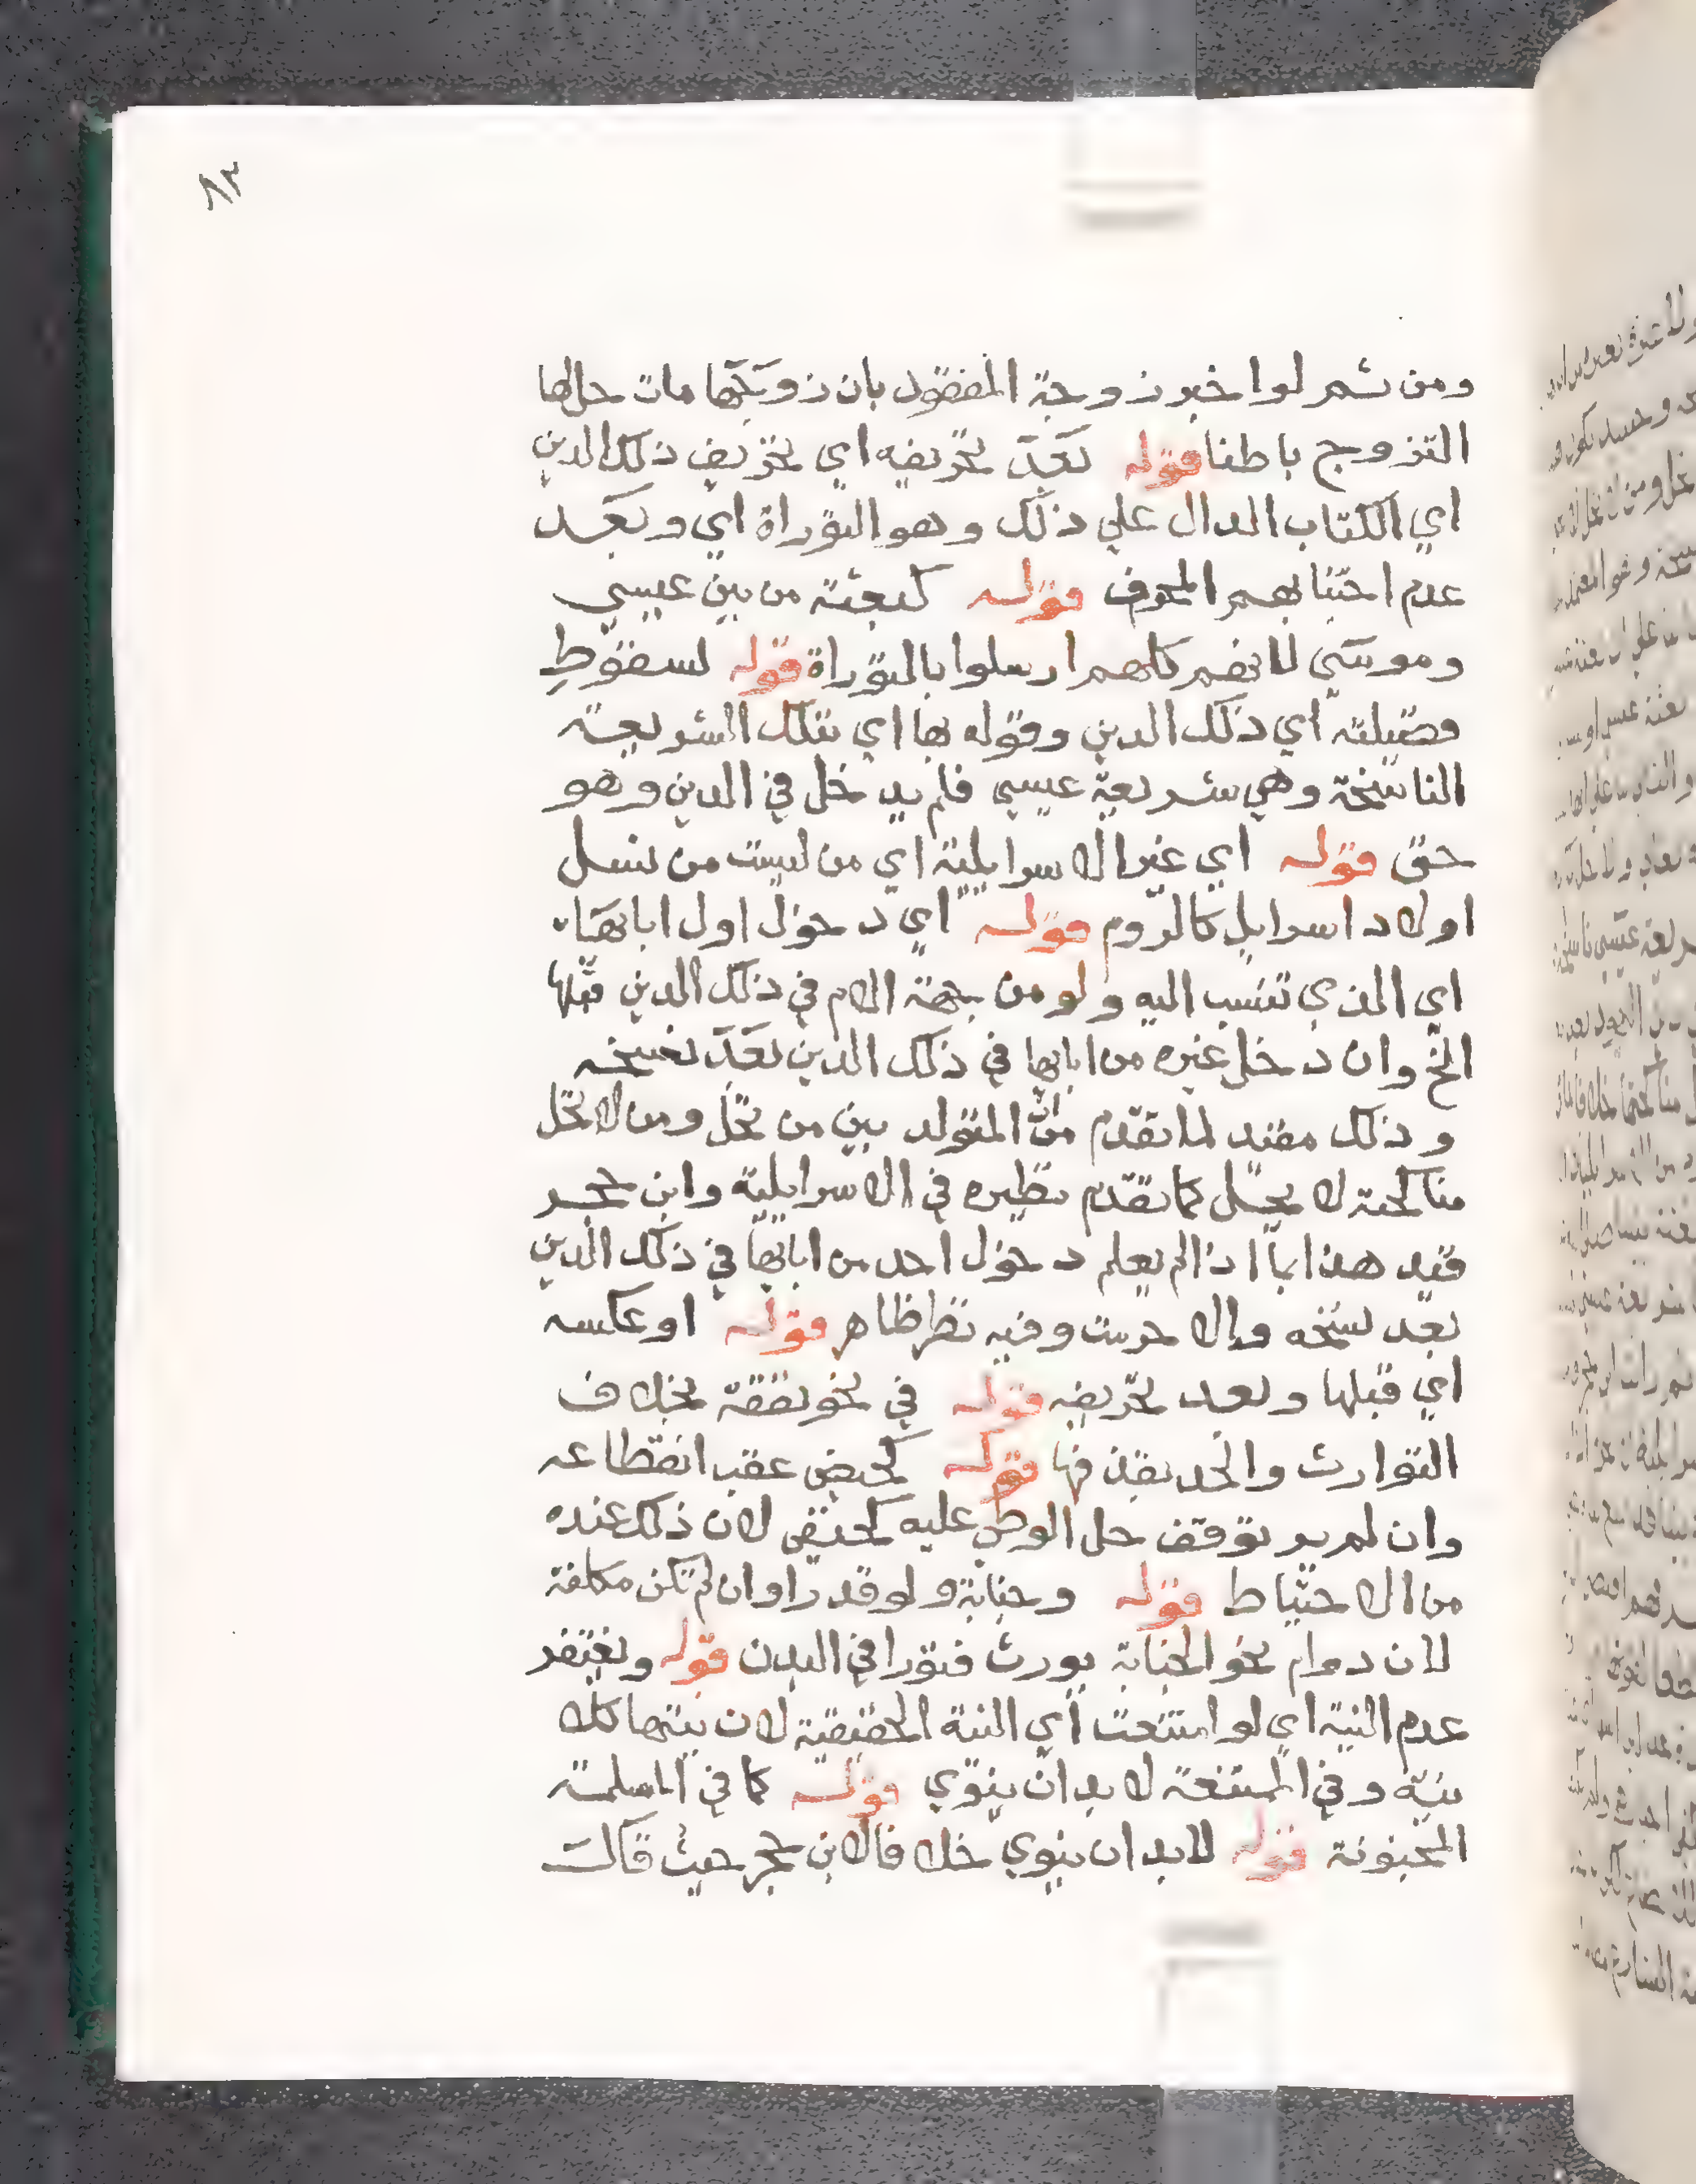 ٨٢
ومن ثم لو اخبر زوجة المفقود بان زوجها مات حل لها
التزوج باطنا قوله بعد تحريفه اي تحريف ذلك الدين
اي الكتاب الدال علي ذلك وهو التوراة اي وبعد
عدم اجتنابهم المحرف قوله كبعثة من بين عيسي
وموسي لانهم كلهم ارسلوا بالتوراة قوله لسقوط
فضيلته اي ذلك الدين وقوله بها اي بتلك الشريعة
الناسخة وهي شريعة عيسي فلم يدخل في الدين وهو
حق قوله اي غير الاسرايلية اي من ليست من نسل
اولاد اسرايل كالروم قوله اي دخول اول ابايها
اي الذي تنسب اليه ولو من جهة الام في ذلك الدين قبلها
الخ وان دخل غيره من ابايها في ذلك الدين بعد نسخه
وذلك مقيد لما تقدم من ان المتولد بين من تحل ومن لا تحل
مناكحته لا يحل كما تقدم نظيره في الاسرايلية وابن حجر
قيد هذا بما اذا لم يعلم دخول احد من ابايها في ذلك الدين
بعد نسخه والا حرمت وفيه نظر ظاهر قوله او عكسه
اي قبلها وبعد تحريفه قوله في نحو نفقة بخلاف
التوارث والحد بقذفها قوله كحيض عقب انقطاعه
وان لم يتوقف حل الوطي عليه كحنفي لان ذلك عنده
من الاحتياط قوله وجنابة ولو قدرا وان لم تكن مكلفة
لان دوام نحو الجنابة يورث فتورا في البدن قوله ويغتفر
عدم النية اي لو امتنعت اي النية الحقيقية لان نيتها كلا
نية وفي الممتنعة لا بد ان ينوي قوله كما في المسلمة
المجنونة قوله لا بد ان ينوي خلافا لابن حجر حيث قال